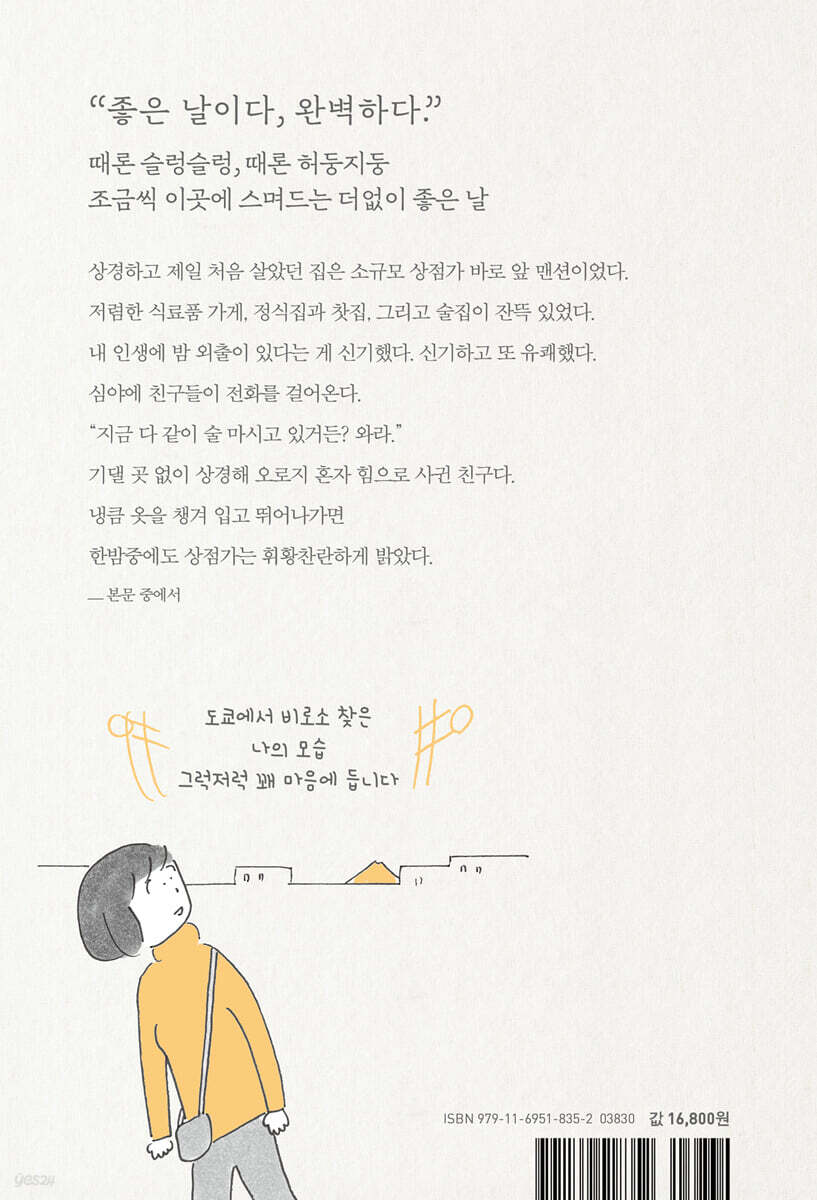 “좋은 날이다, 완벽하다.”
때론 슬렁슬렁, 때론 허둥지둥
조금씩 이곳에 스며드는 더없이 좋은 날
상경하고 제일 처음 살았던 집은 소규모 상점가 바로 앞 맨션이었다.
저렴한 식료품 가게, 정식집과 찻집, 그리고 술집이 잔뜩 있었다.
내 인생에 밤 외출이 있다는 게 신기했다. 신기하고 또 유쾌했다.
심야에 친구들이 전화를 걸어온다.
“지금 다 같이 술 마시고 있거든? 와라.”
기댈 곳 없이 상경해 오로지 혼자 힘으로 사귄 친구다.
냉큼 옷을 챙겨 입고 뛰어나가면
한밤중에도 상점가는 휘황찬란하게 밝았다.
— 본문 중에서
도쿄에서 비로소 찾은
나의 모습
그럭저럭 꽤 마음에 듭니다
ISBN 979-11-6951-835-2 03830 값 16,800원
yes24